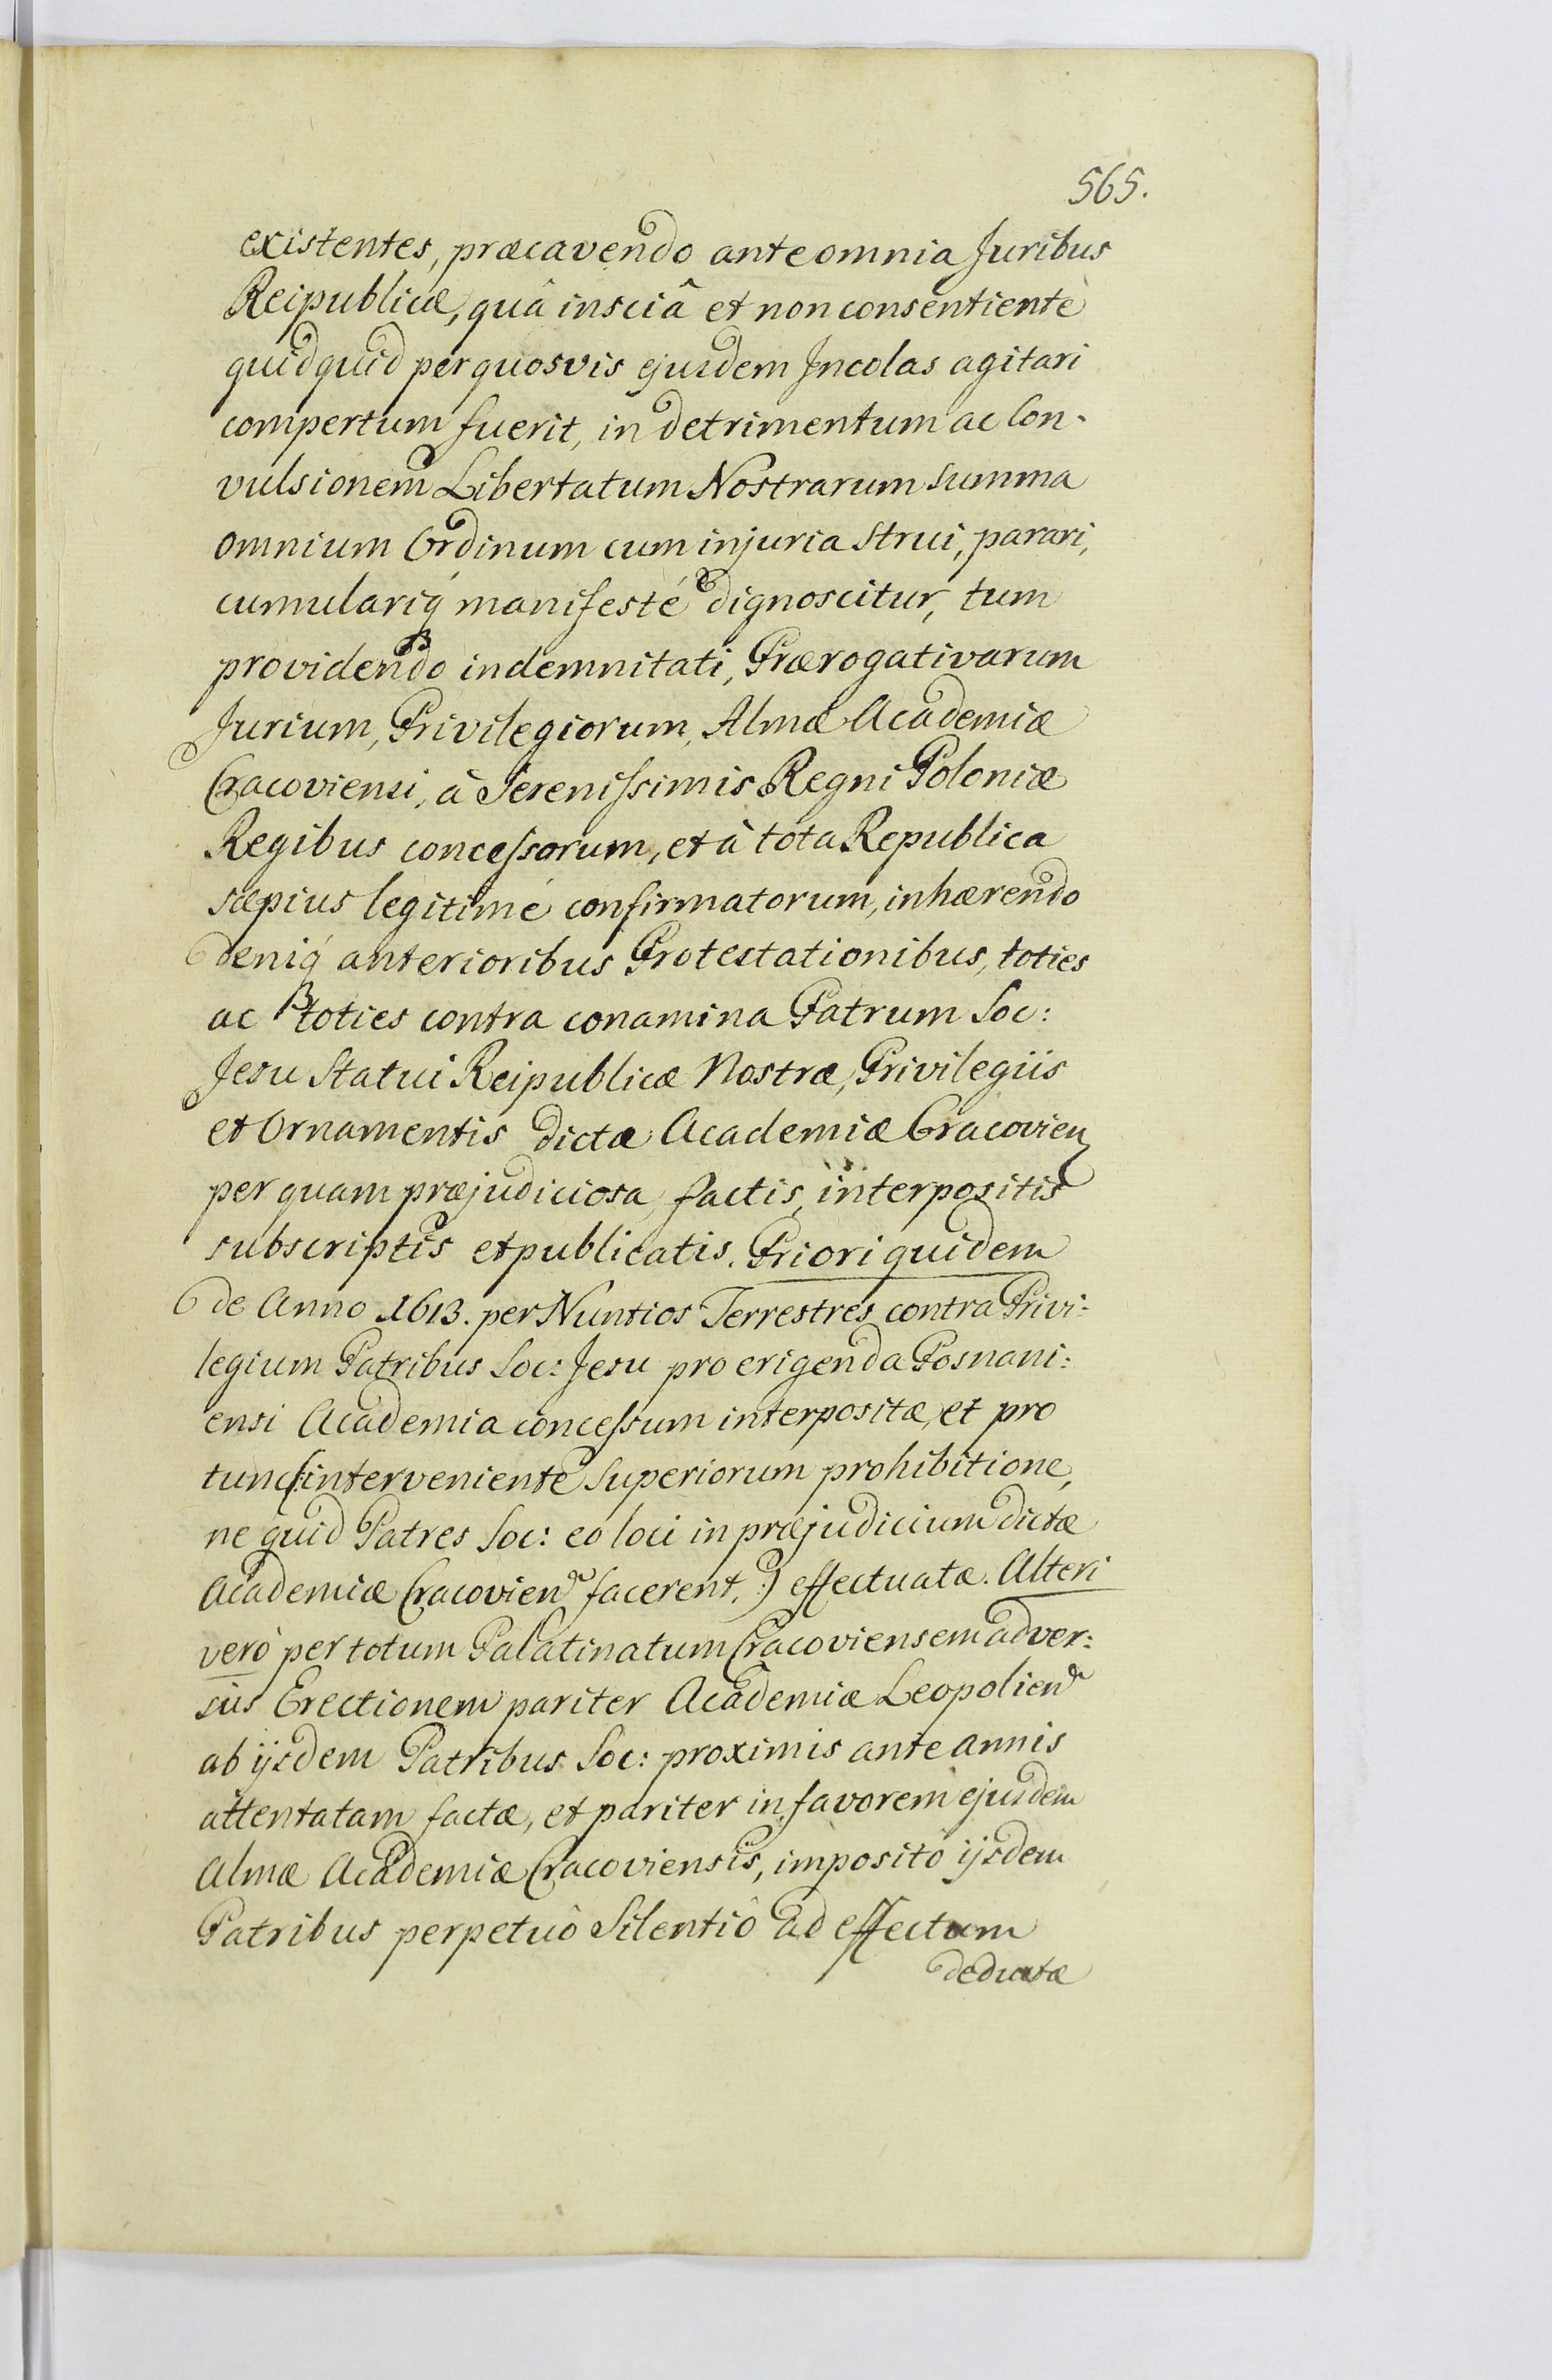 565.
existentes, præcavendo ante omnia Juribus
Reipublicæ, quâ insciâ et non consentiente
quidquid per quosvis ejusdem Incolas agitari
compertum fuerit, in detrimentum ac Con-
vulsionem Libertatum Nostrarum summa
omnium Ordinum cum injuria strui, parari,
cumulariq́ manifesté dignoscitur, tum
providendo indemnitati, Prærogativarum
Jurium, Privilegiorum, Almæ Academiæ
Cracoviensi, à Serenissimis Regni Poloniæ
Regibus concessorum, et à tota Republica
sæpius legitimé confirmatorum, inhærendo
deniq́ anterioribus Protestationibus, toties
ac toties contra conamina Patrum Soc:
Jesu Statui Reipublicæ Nostræ, Privilegiis
et Ornamentis dictæ Academiæ Cracovien
per quam præjudiciosa, factis, interpositis
subscriptis et publicatis. Priori quidem
de Anno 1613. per Nuntios Terrestres contra Privi:
legium Patribus Soc: Jesu pro erigenda Posnani:
ensi Academia concessum interpositæ, et pro
tunc (: interveniente Superiorum prohibitione,
ne quid Patres Soc: eo loci in præjudicium dictæ
Academiæ Cracovien facerent, :) effectuatæ. Alteri
verò per totum Palatinatum Cracoviensem adver:
sus Erectionem pariter Academiæ Leopolien
ab ijsdem Patribus Soc: proximis ante annis
attentatam factæ, et pariter in favorem ejusdem
Almæ Academiæ Cracoviensis, imposito ijsdem
Patribus perpetuô Silentiô ad effectum
deductæ